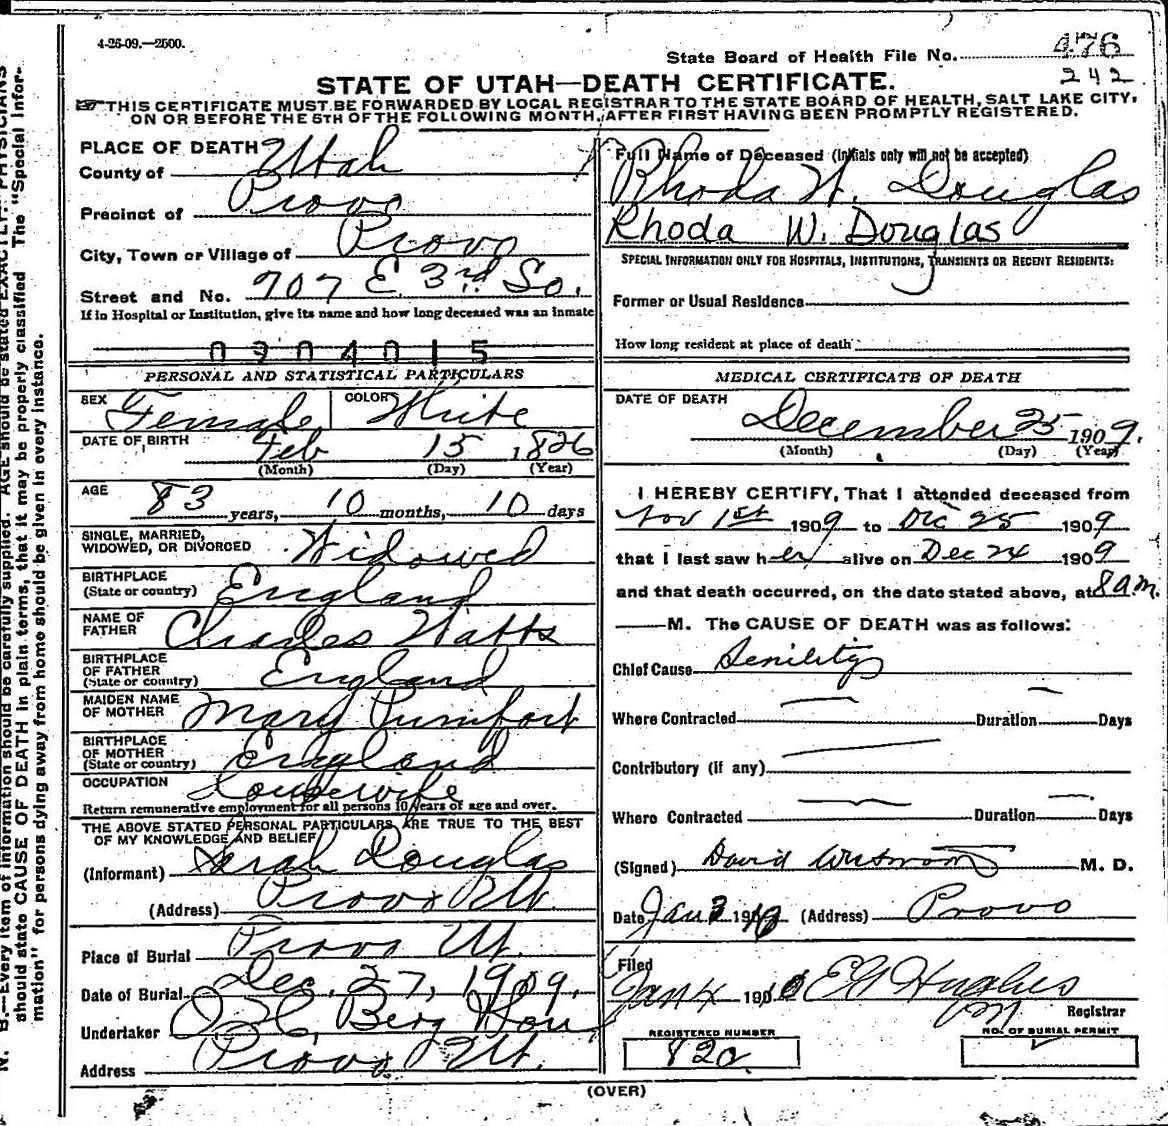 4-26-09.—2500.
State Board of Health File No. 476
242
STATE OF UTAH—DEATH CERTIFICATE.
THIS CERTIFICATE MUST BE FORWARDED BY LOCAL REGISTRAR TO THE STATE BOARD OF HEALTH, SALT LAKE CITY,
ON OR BEFORE THE 5TH OF THE FOLLOWING MONTH, AFTER FIRST HAVING BEEN PROMPTLY REGISTERED.
PLACE OF DEATH
County of Utah
Precinct of Provo
City, Town or Village of Provo
Street and No. 707 E 3rd So.
If in Hospital or Institution, give its name and how long deceased was an inmate
0904015
PERSONAL AND STATISTICAL PARTICULARS
SEX Female COLOR White
DATE OF BIRTH Feb 15, 1826
(Month) (Day) (Year)
AGE 83 years, 10 months, 10 days
SINGLE, MARRIED,
WIDOWED, OR DIVORCED Widowed
BIRTHPLACE
(State or country) England
NAME OF
FATHER Charles Watts
BIRTHPLACE
OF FATHER
(State or country) England
MAIDEN NAME
OF MOTHER Mary
BIRTHPLACE
OF MOTHER
(State or country) England
OCCUPATION Housewife
Return remunerative employment for all persons 10 years of age and over.
THE ABOVE STATED PERSONAL PARTICULARS ARE TRUE TO THE BEST
OF MY KNOWLEDGE AND BELIEF
(Informant) Sarah Douglas
(Address) Provo Ut
Place of Burial Provo Ut.
Date of Burial Dec. 27, 1909.
Undertaker Berg
Address Provo Ut.
Full Name of Deceased (Initials only will not be accepted)
Rhoda W. Douglas
Rhoda W. Douglas
SPECIAL INFORMATION ONLY FOR HOSPITALS, INSTITUTIONS, TRANSIENTS OR RECENT RESIDENTS:
Former or Usual Residence
How long resident at place of death
MEDICAL CERTIFICATE OF DEATH
DATE OF DEATH
December 25 1909.
(Month) (Day) (Year)
I HEREBY CERTIFY, That I attended deceased from
Nov 1st 1909 to Dec 25 1909
that I last saw her alive on Dec 24 1909
and that death occurred, on the date stated above, at 8 a.m.
M. The CAUSE OF DEATH was as follows:
Chief Cause Senility
Where Contracted — Duration — Days
Contributory (if any) —
Where Contracted — Duration — Days
(Signed) David M. D.
Date Jan 3 1910 (Address) Provo
Filed
Jan 4 1910 E G Hughes
Registrar
REGISTERED NUMBER
820
NO. OF BURIAL PERMIT
(OVER)
N. B.—Every item of information should be carefully supplied. AGE should be stated EXACTLY. PHYSICIANS
should state CAUSE OF DEATH in plain terms, that it may be properly classified. The "Special Infor-
mation" for persons dying away from home should be given in every instance.